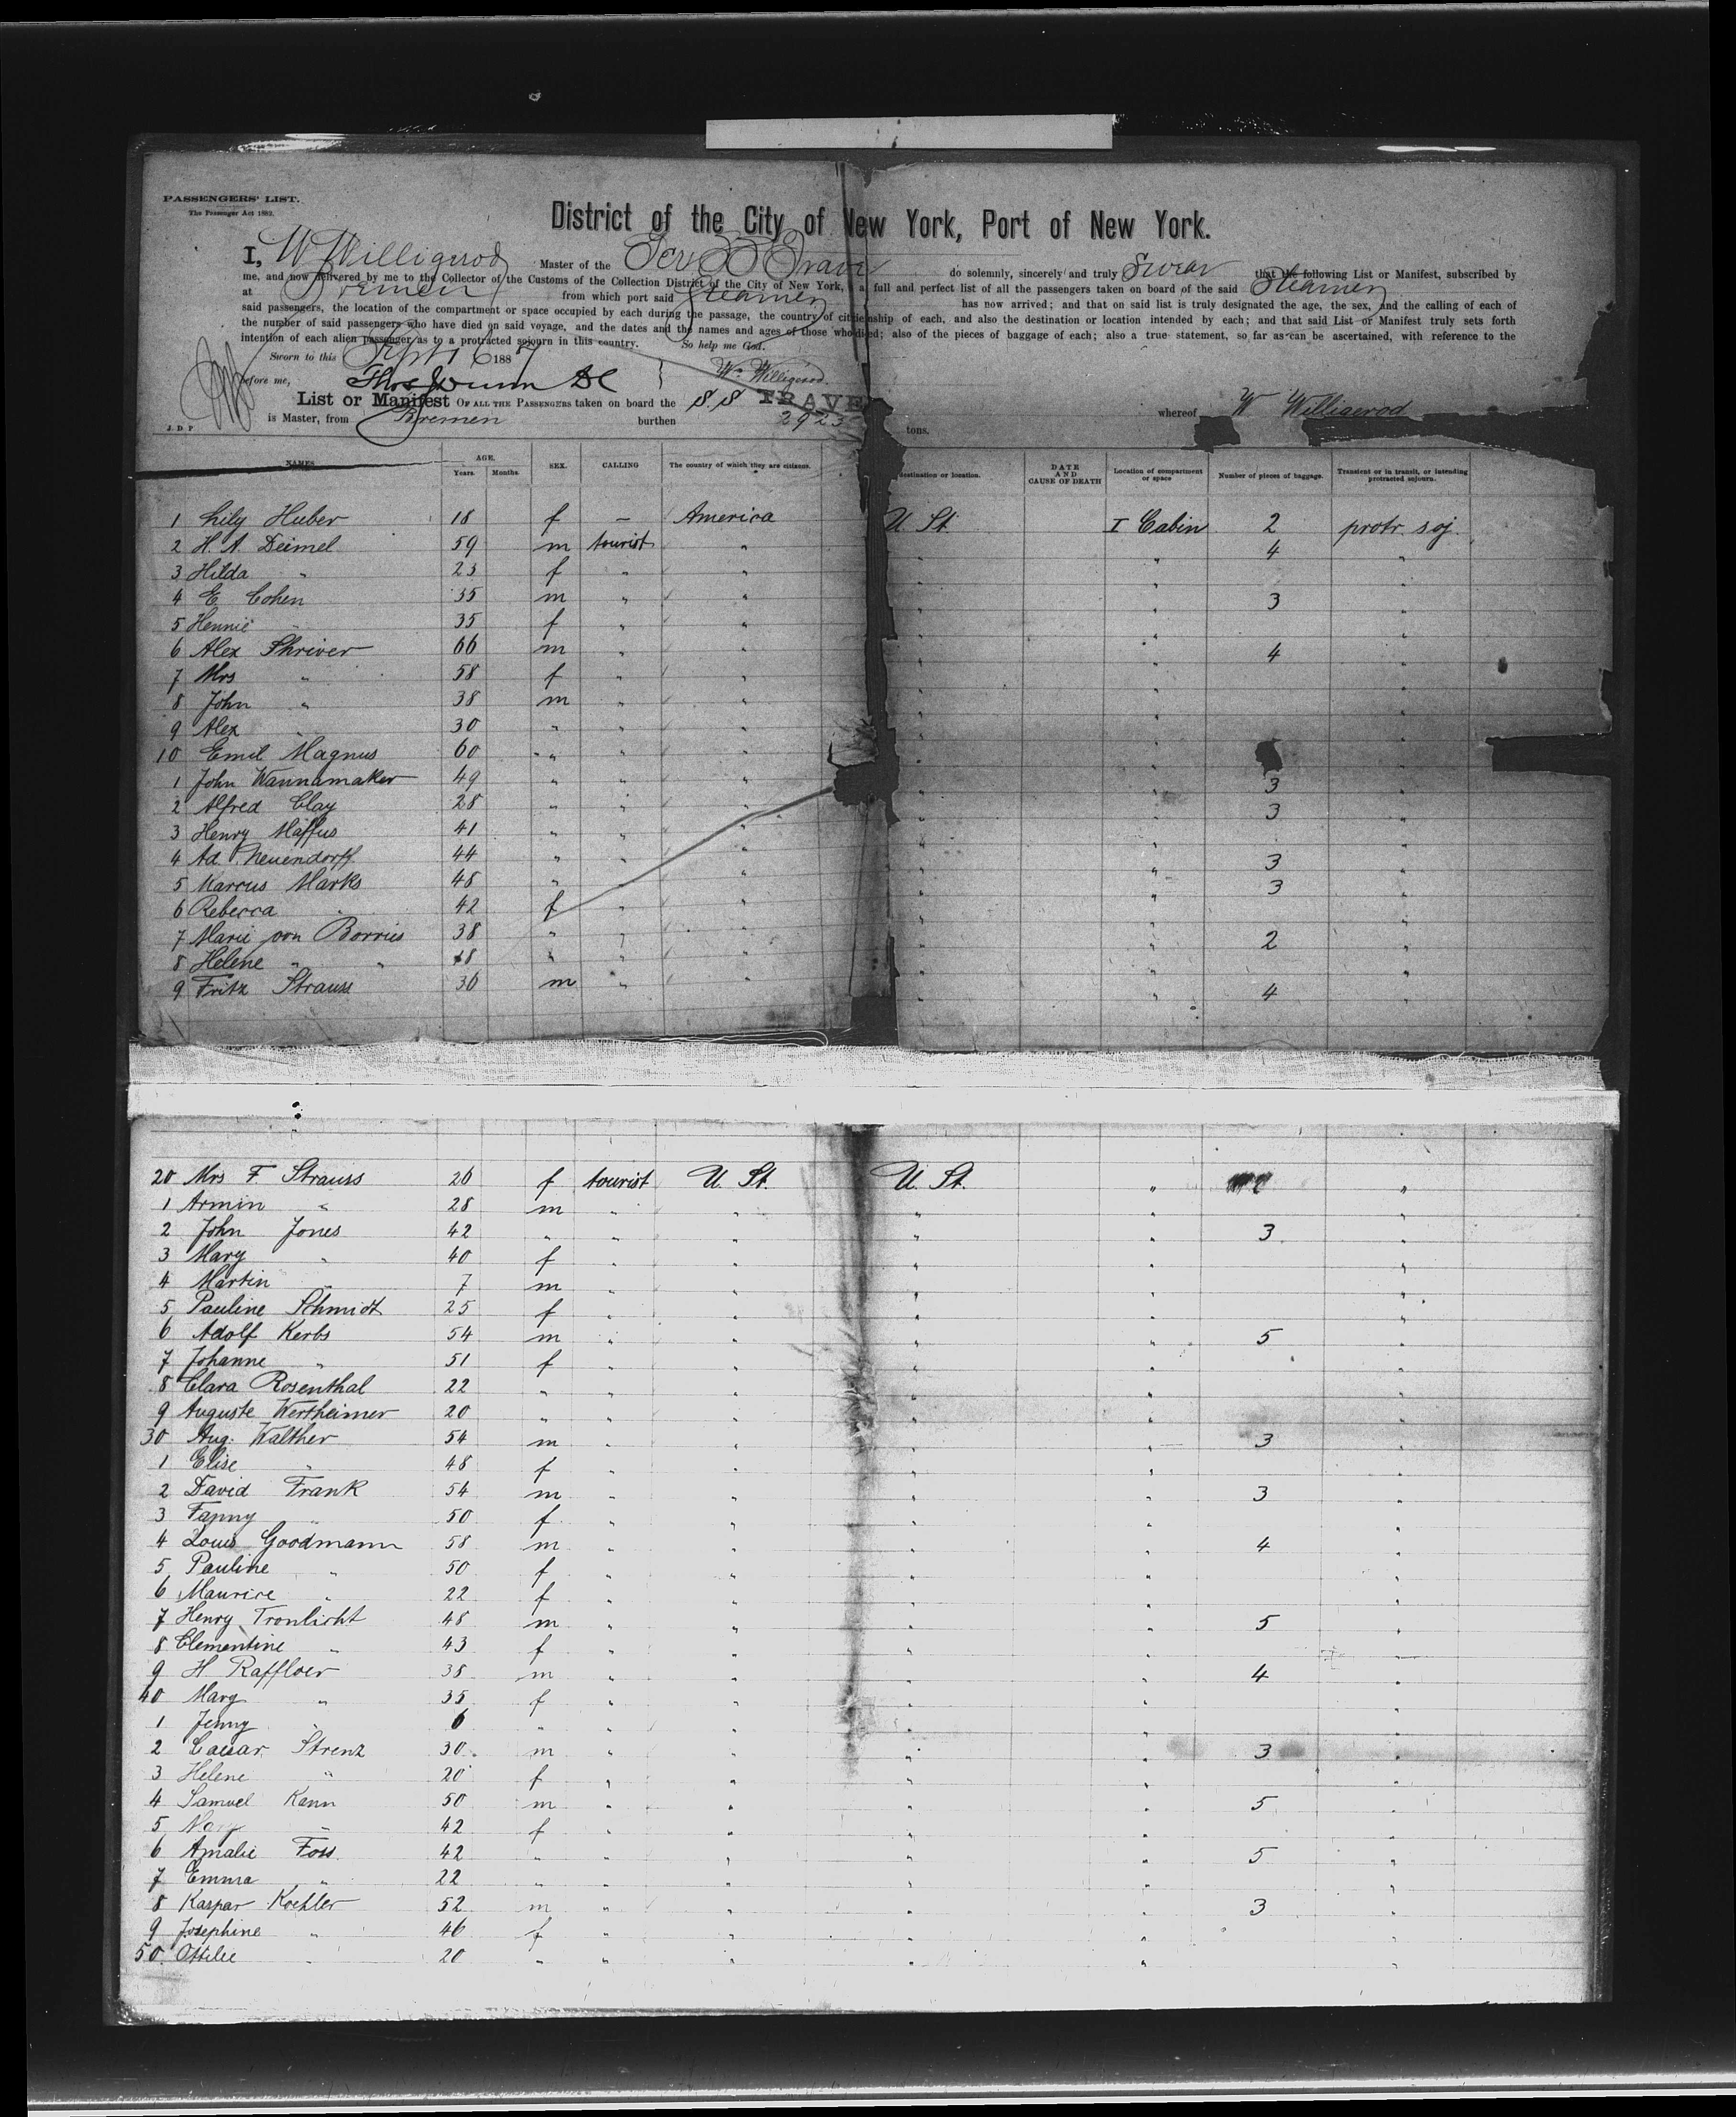 PASSENGERS' LIST.
The Passenger Act 1882.
District of the City of New York, Port of New York.
I, W Willigerod Master of the Trave do solemnly, sincerely and truly Swear that the following List or Manifest, subscribed by
me, and now delivered by me to the Collector of the Customs of the Collection District of the City of New York, a full and perfect list of all the passengers taken on board of the said Steamer
at Bremen from which port said Steamer has now arrived; and that on said list is truly designated the age, the sex, and the calling of each of
said passengers, the location of the compartment or space occupied by each during the passage, the country of citizenship of each, and also the destination or location intended by each; and that said List or Manifest truly sets forth
the number of said passengers who have died on said voyage, and the dates and the names and ages of those who died; also of the pieces of baggage of each; also a true statement, so far as can be ascertained, with reference to the
intention of each alien passenger as to a protracted sojourn in this country. So help me God.
Sworn to this Sept 16 1887
before me, Wm Willigerod
List or Manifest OF ALL THE PASSENGERS taken on board the S.S TRAVE whereof W Willigerod
J. D. P. is Master, from Bremen burthen 2923 tons.
NAMES AGE. Years. Months. SEX. CALLING The country of which they are citizens. destination or location. DATE AND CAUSE OF DEATH Location of compartment or space Number of pieces of baggage. Transient or in transit, or intending protracted sojourn.
1 Lily Huber 18 f – America U St. I Cabin 2 protr soj.
2 H. A. Deimel 59 m tourist " " " 4 "
3 Hilda " 23 f " " " " "
4 E. Cohen 35 m " " " " 3 "
5 Hennie " 35 f " " " " "
6 Alex Shriver 66 m " " " " 4 "
7 Mrs " 58 f " " " " "
8 John " 38 m " " " " "
9 Alex " 30 " " " " " "
10 Emil Magnus 60 " " " " " "
1 John Wannamaker 49 " " " " " 3 "
2 Alfred Clay 28 " " " " " 3 "
3 Henry Maffus 41 " " " " " "
4 Ad. Neuendorff 44 " " " " " 3 "
5 Marcus Marks 48 " " " " " 3 "
6 Rebecca " 42 f " " " " "
7 Marie von Borries 38 " " " " " 2 "
8 Helene " " 18 " " " " " "
9 Fritz Strauss 36 m " " " " 4 "
20 Mrs F Strauss 26 f tourist U. St. U. St. " "
1 Armin " 28 m " " " " "
2 John Jones 42 " " " " " 3 "
3 Mary " 40 f " " " " "
4 Martin " 7 m " " " " "
5 Pauline Schmidt 25 f " " " " "
6 Adolf Kerbs 54 m " " " " 5 "
7 Johanne " 51 f " " " " "
8 Clara Rosenthal 22 " " " " " "
9 Auguste Wertheimer 20 " " " " " "
30 Aug. Walther 54 m " " " " 3 "
1 Elise " 48 f " " " " "
2 David Frank 54 m " " " " 3 "
3 Fanny " 50 f " " " " "
4 Louis Goodmann 58 m " " " " 4 "
5 Pauline " 50 f " " " " "
6 Maurice " 22 f " " " " "
7 Henry Tronlicht 48 m " " " " 5 "
8 Clementine " 43 f " " " " "
9 H Raffloer 38 m " " " " 4 "
40 Mary " 35 f " " " " "
1 Jenny " 6 " " " " " "
2 Caesar Strenz 30 m " " " " 3 "
3 Helene " 20 f " " " " "
4 Samuel Kann 50 m " " " " 5 "
5 " 42 f " " " " "
6 Amalie Foss 42 " " " " " 5 "
7 Emma " 22 " " " " " "
8 Kaspar Koehler 52 m " " " " 3 "
9 Josephine " 46 f " " " " "
50 Ottilie " 20 " " " " " "